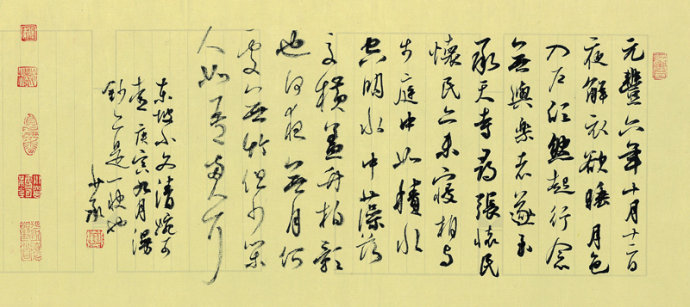 元豐六年十月十二日
夜解衣欲睡月色
入户欣然起行念
無與樂者遂至
承天寺尋張懷民
懷民亦未寢相與
步庭中如積水
空明水中藻荇
交橫蓋竹柏影
也何夜無月何
處無竹但少閑
人如吾兩人耳
東坡小文清婉可
喜庚寅九月漫
鈔亦是一快也